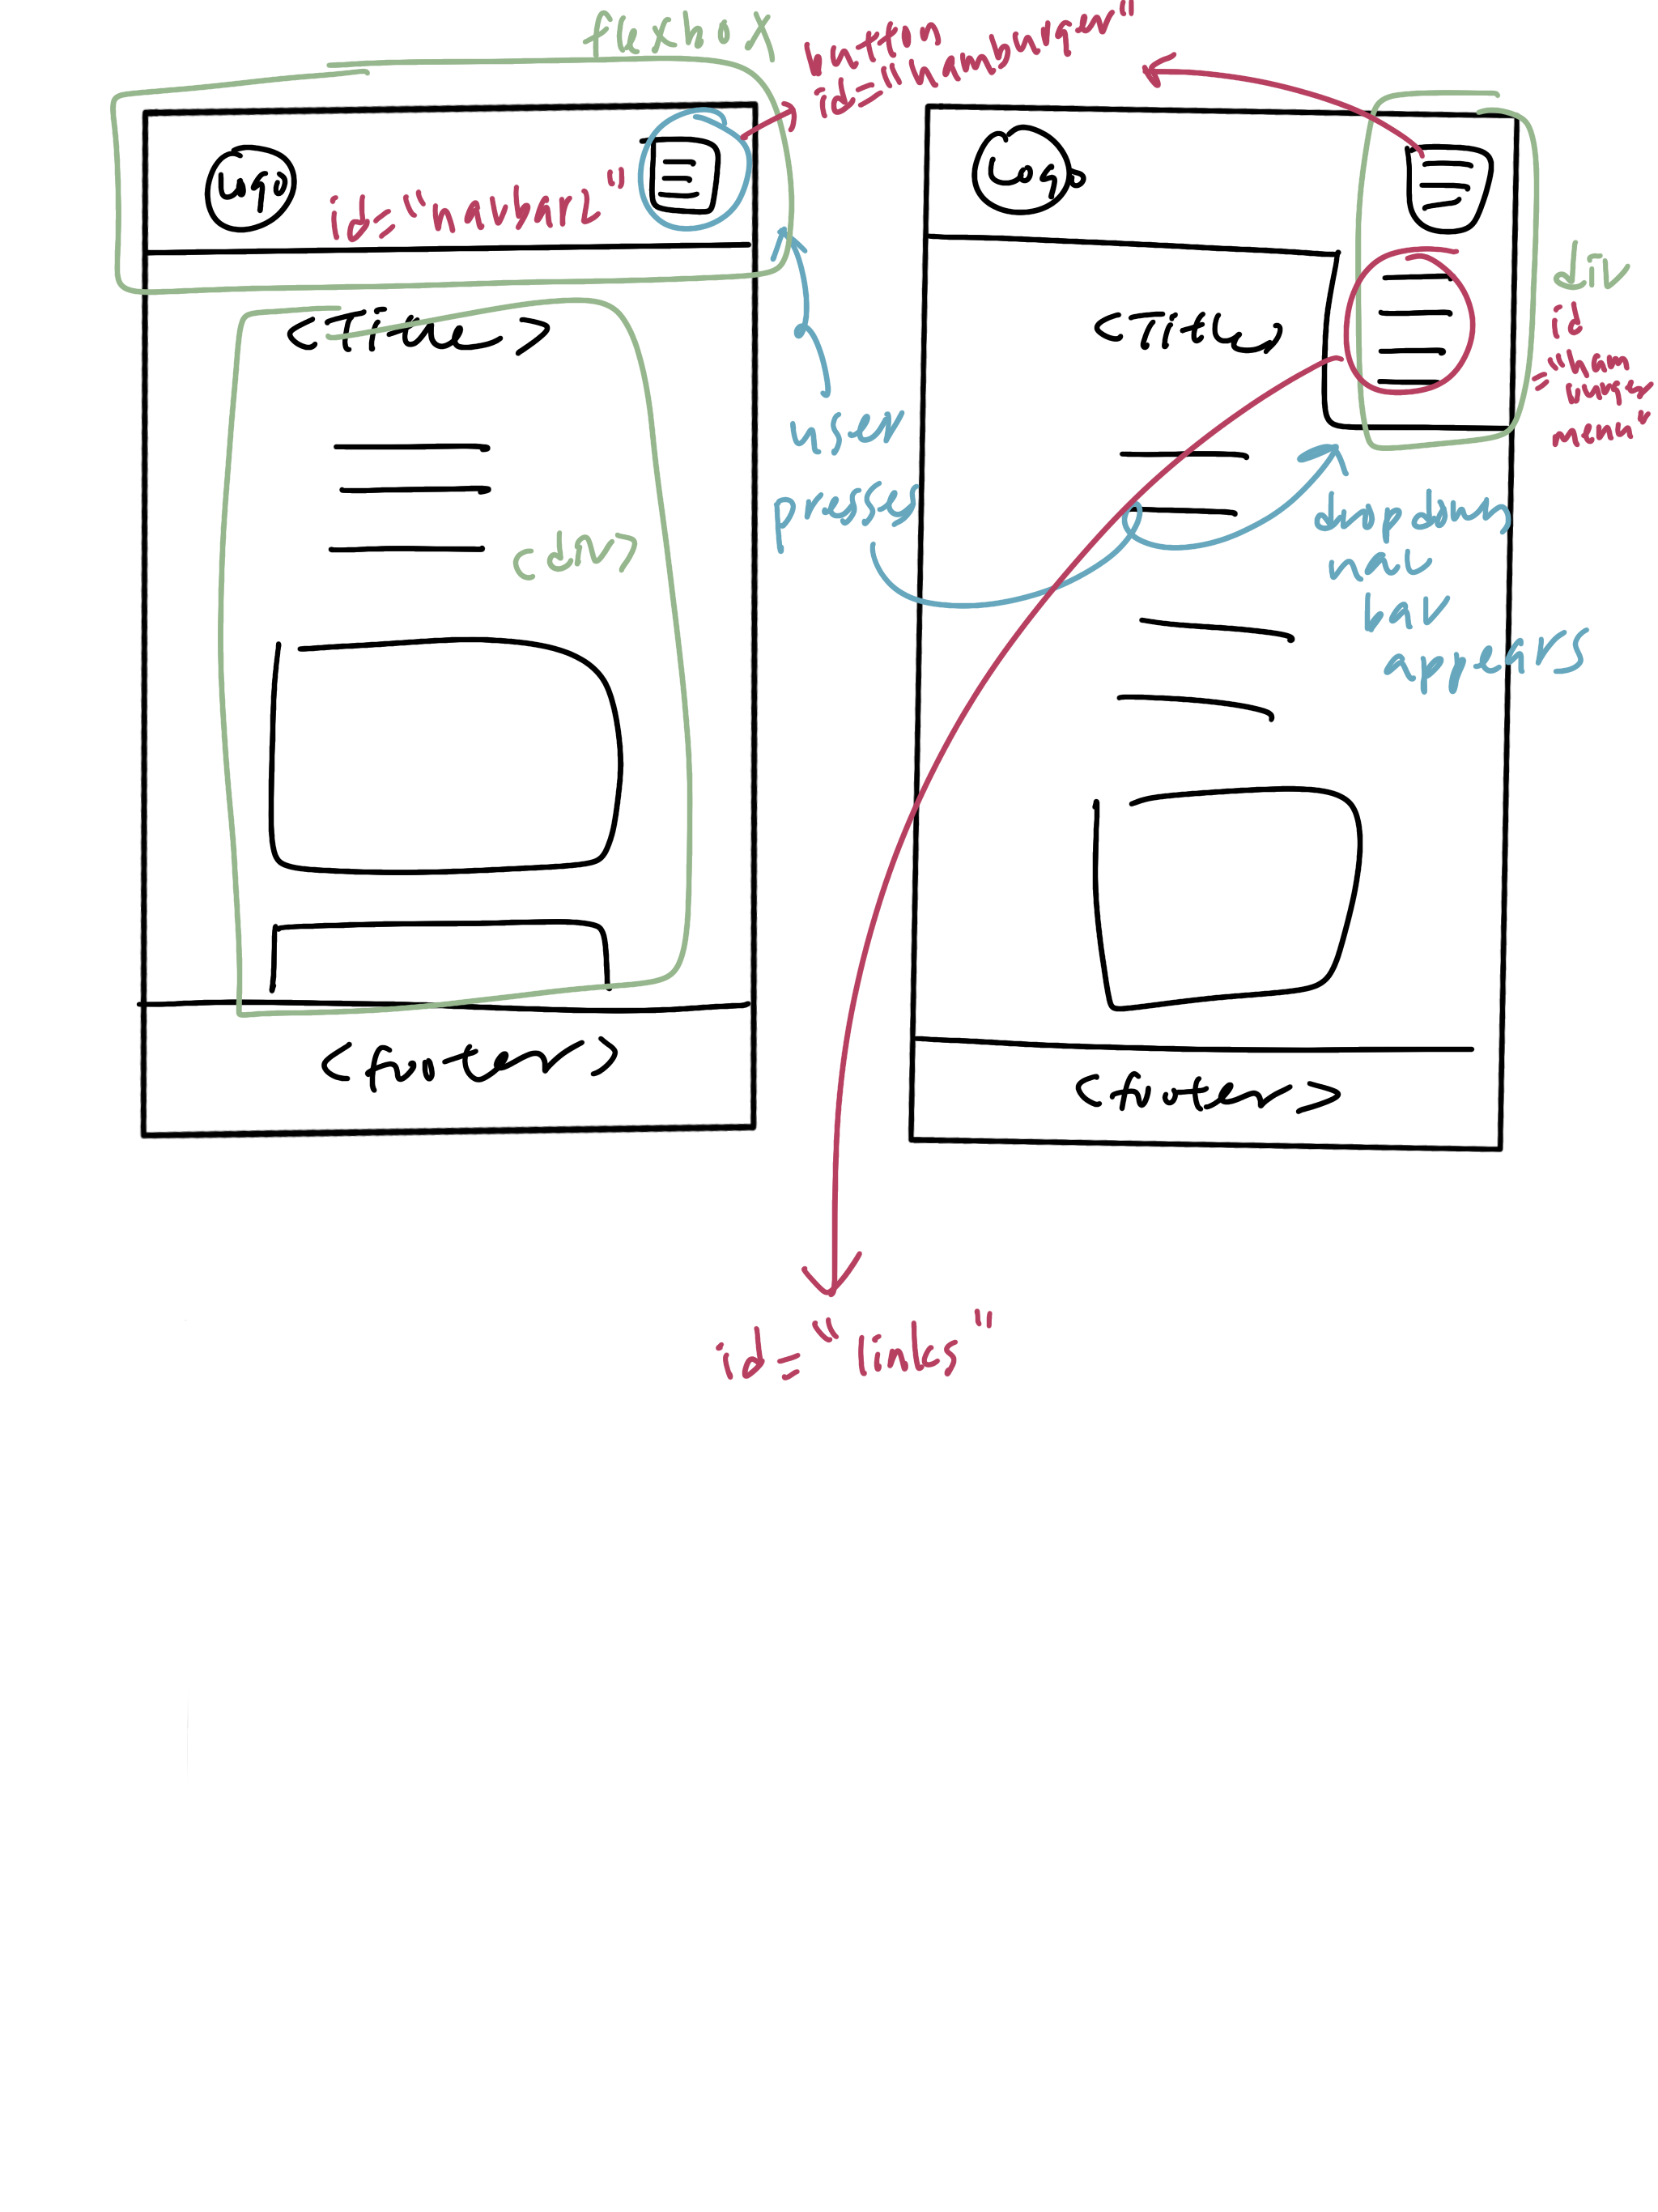 flexbox
button
id="hamburger"
Logo
id="navbar2"
<Title>
<div>
<footer>
user
presses
Logo
<Title>
div
id
="ham
burger
menu"
dropdown
nav
bar
appears
<footer>
id="links"